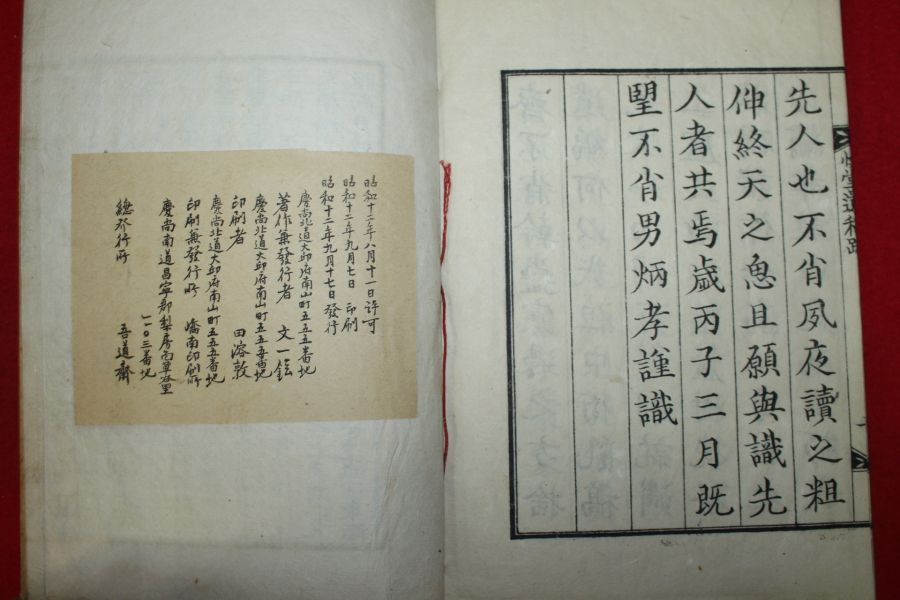 先人也不肖夙夜讀之粗
伸終天之寃且願與識先
人者共焉歲丙子三月既
望不肖男炳孝謹識
堂遺稿跋
昭和十二年八月十一日许可
昭和十二年九月七日 印刷
昭和十二年九月十七日發行
慶尚北道大邱府南山町五五五番地
著作兼發行者 文一鉉
慶尚北道大邱府南山町五五五番地
印刷者 田溶敦
慶尚北道大邱府南山町五五五番地
印刷兼發行所 嶠南印刷所
慶尚南道昌寧郡梨房面
一一〇三番地
總發行所 吾道齋